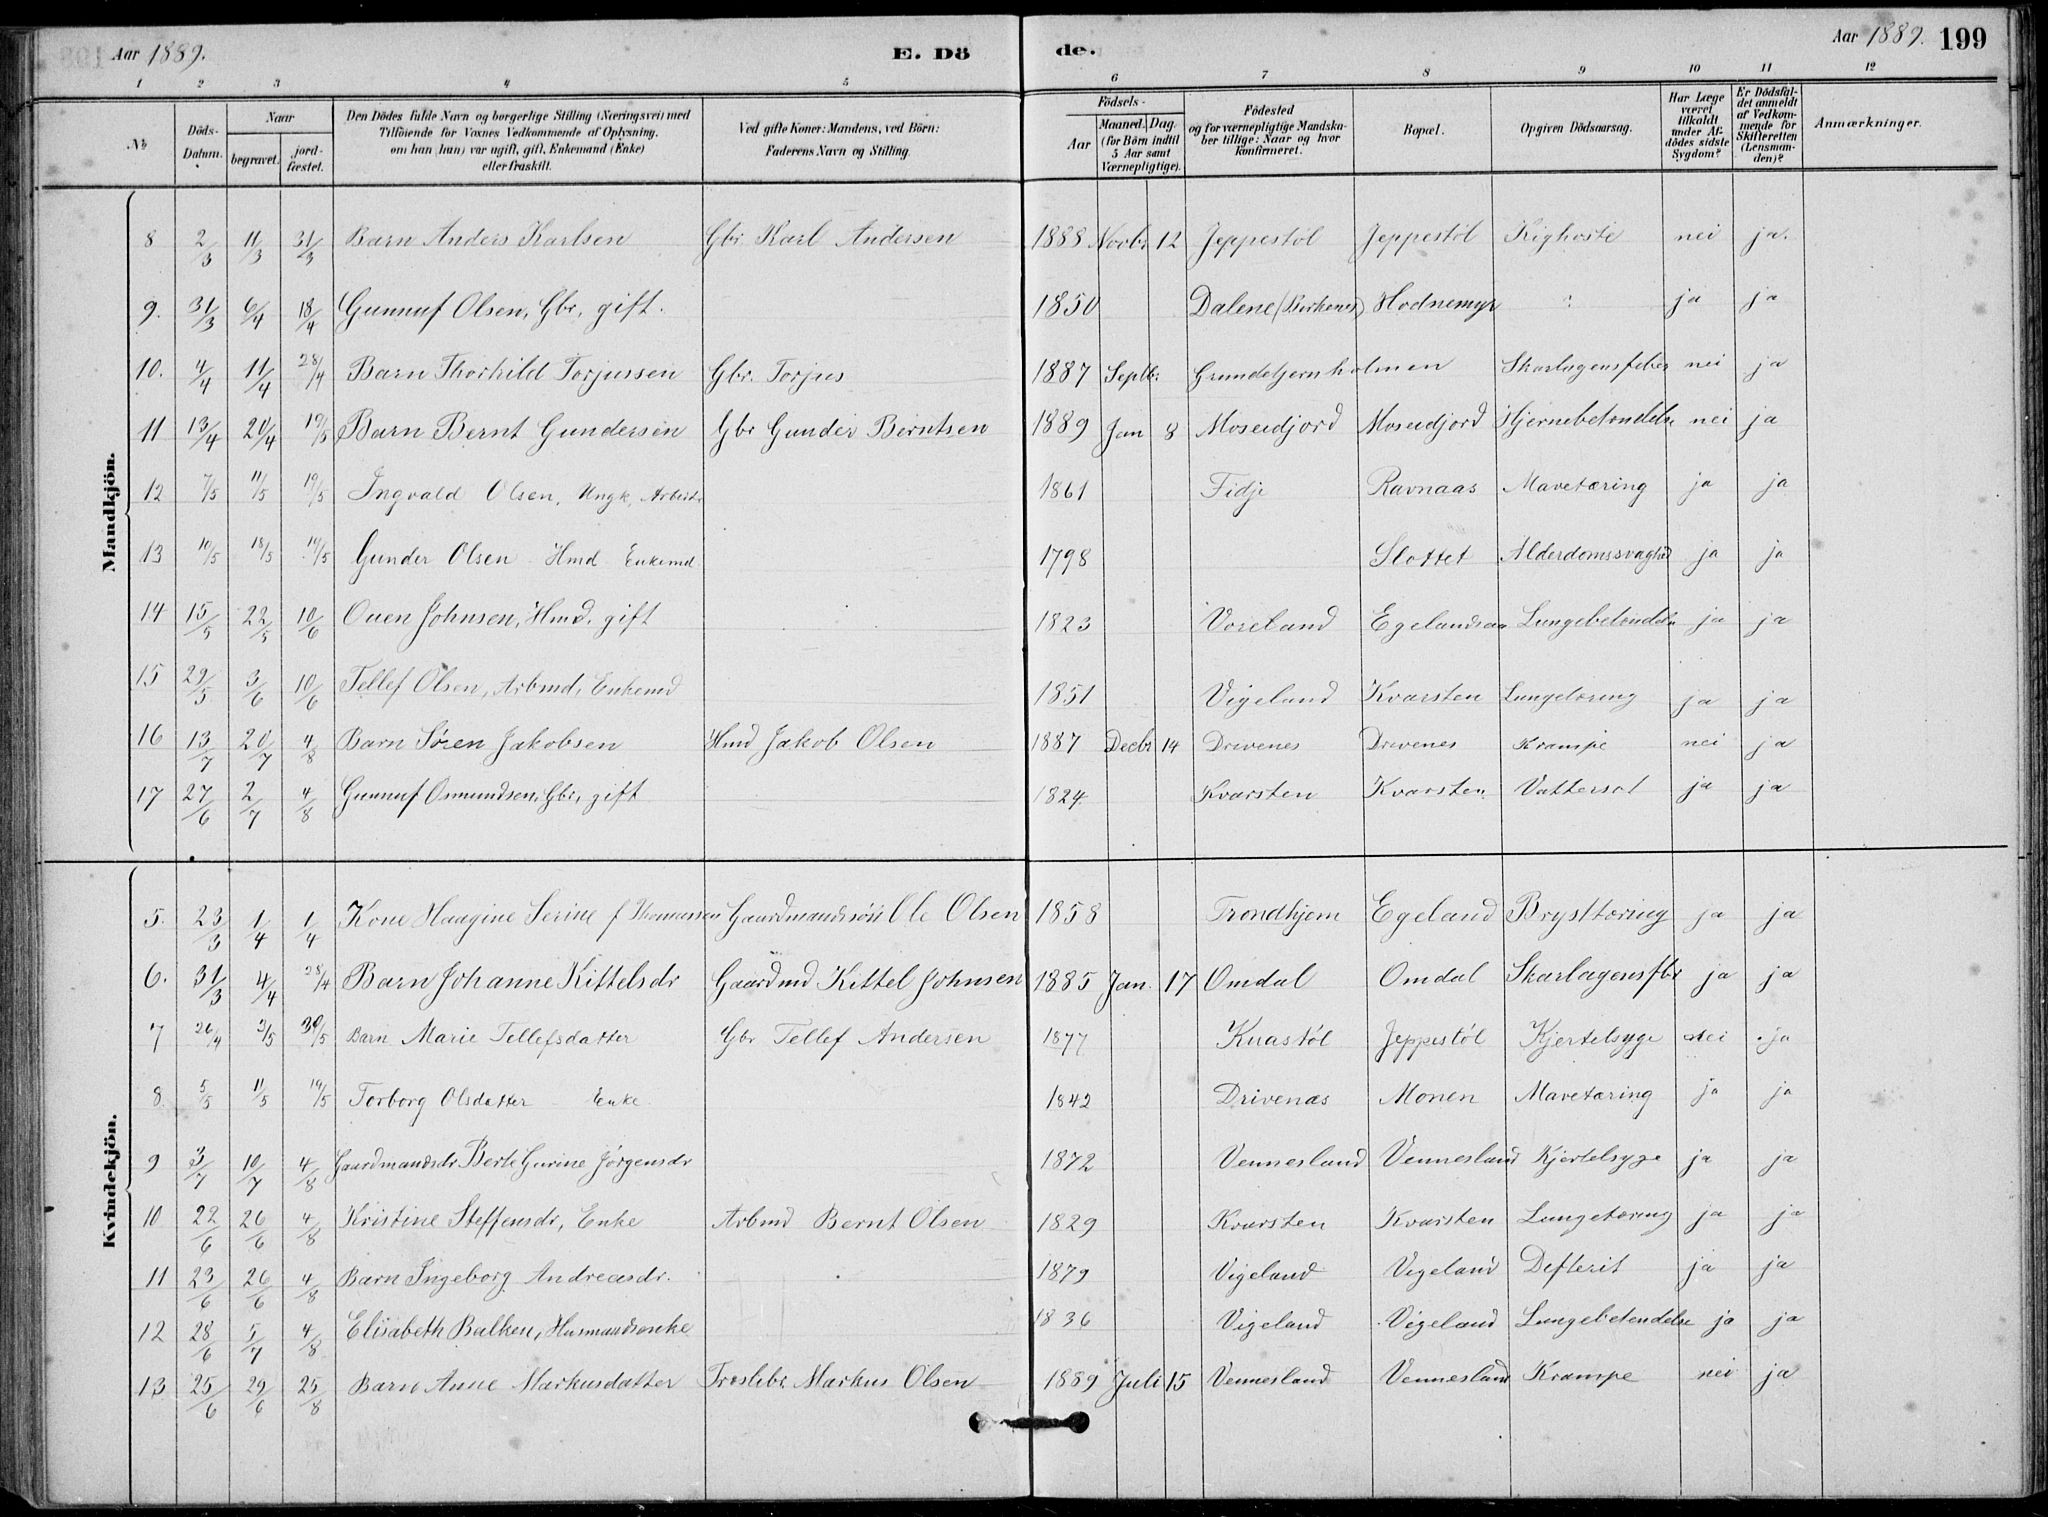 Aar 1889. E. Dö de. Aar 1889. 199
1 2 3 4 5 6 7 8 9 10 11 12
No Döds-Datum. Naar begravet. jordfæstet. Den Dödes fulde Navn og borgerlige Stilling (Næringsvei) med Tilföiende for Voxnes Vedkommende af Oplysning, om han (hun) var ugift, gift, Enkemand (Enke) eller fraskilt. Ved gifte Koner: Mandens, ved Börn: Faderens Navn og Stilling. Födsels- Aar Maaned. Dag. (for Börn indtil 5 Aar samt Værnepligtige). Födested og for værnepligtige Mandskaber tillige: Naar og hvor konfirmeret. Bopæl. Opgiven Dödsaarsag. Har Læge været tilkaldt under Afdödes sidste Sygdom? Er Dödsfaldet anmeldt af Vedkommende for Skifteretten (Lensmanden)? Anmærkninger.
Mandkjön.
8 2/3 11/3 31/3 Barn Anders Karlsen Gbr. Karl Andersen 1888 Novbr 12 Jeppestøl Jeppestøl Kighoste nei ja.
9. 31/3 6/4 18/4 Gunnuf Olsen, Gbr, gift. 1850 Dalene (Birkenes) Hodnemyr ? ja ja
10. 4/4 11/4 28/4 Barn Thorkild Torjussen Gbr. Torjus 1887 Septbr. Grundetjernholmen Skarlagensfeber nei ja
11 13/4 20/4 19/5 Barn Bernt Gundersen Gbr Gunder Berntsen 1889 Jan 8 Moseidjord Moseidjord Hjernebetændelse nei ja
12 7/5 11/5 19/5 Ingvald Olsen, Ungk, Arbeider 1861 Fidje Ravnaas Mavetæring ja ja
13 10/5 18/5 19/5 Gunder Olsen Hmd Enkemd 1798 Slottet Alderdomssvaghed ja ja
14 15/5 22/5 10/6 Ouen Johnsen, Hmd, gift 1823 Voreland Egelandsaa Lungebetændelse ja ja
15 29/5 3/6 10/6 Tellef Olsen, Arbmd, Enkemd 1851 Vigeland Kvarsten Lungetæring ja ja
16 13/7 20/7 4/8 Barn Søren Jakobsen Hmd Jakob Olsen 1887 Decbr 14 Drivenes Drivenes Krampe nei ja
17 27/6 2/7 4/8 Gunnuf Osmundsen, Gbr, gift 1824 Kvarsten Kvarsten Vattersot ja ja
Kvindekjön.
5. 23/3 1/4 1/4 Kone Maagine Serine f Thomassen Gaardmandssøn Ole Olsen 1858 Trondhjem Egeland Brysttæring ja ja
6. 31/3 4/4 28/4 Barn Johanne Kittelsdr Gaardmd Kittel Johnsen 1885 Jan. 17 Omdal Omdal Skarlagensfbr ja ja
7 26/4 3/5 30/5 Barn Marie Tellefsdatter Gbr Tellef Andersen 1877 Knastøl Jeppestøl Kjertelsyge nei ja
8. 5/5 11/5 19/5 Torborg Olsdatter Enke 1842 Drivenæs Monen Mavetæring ja ja
9 3/7 10/7 4/8 Gaardmandsdr Berte Gurine Jørgensdr 1872 Vennesland Vennesland Kjertelsyge ja ja
10 22/6 26/6 4/8 Kristine Steffensdr, Enke Arbmd Bernt Olsen 1829 Kvarsten Kvarsten Lungetæring ja ja
11 23/6 26/6 4/8 Barn Ingeborg Andreasdr. 1879 Vigeland Vigeland Defterit ja ja
12 28/6 5/7 4/8 Elisabeth Balken, Husmandsenke 1836 Vigeland Vigeland Lungebetendelse ja ja
13 25/6 29/6 25/8 Barn Anne Markusdatter Træslibr Markus Olsen 1889 Juli 15 Vennesland Vennesland Krampe nei ja